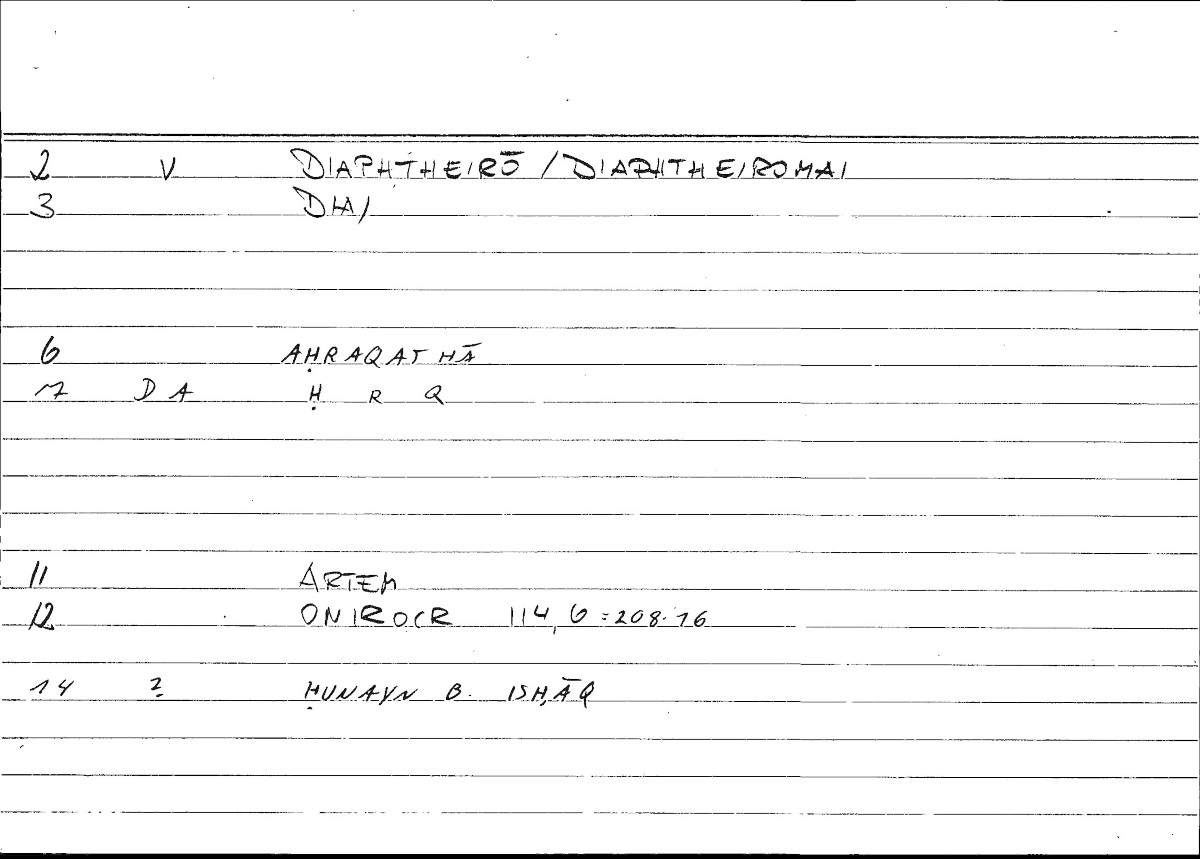 2 V DIAPHTHEIRŌ / DIAPHTHEIROMAI
3
6 AḤRAQATHĀ
17 DA Ḥ R Q
11 ARTEM
12 ONIROCR 114,6 = 208.16
14 2 ḤUNAYN B. ISḤĀQ